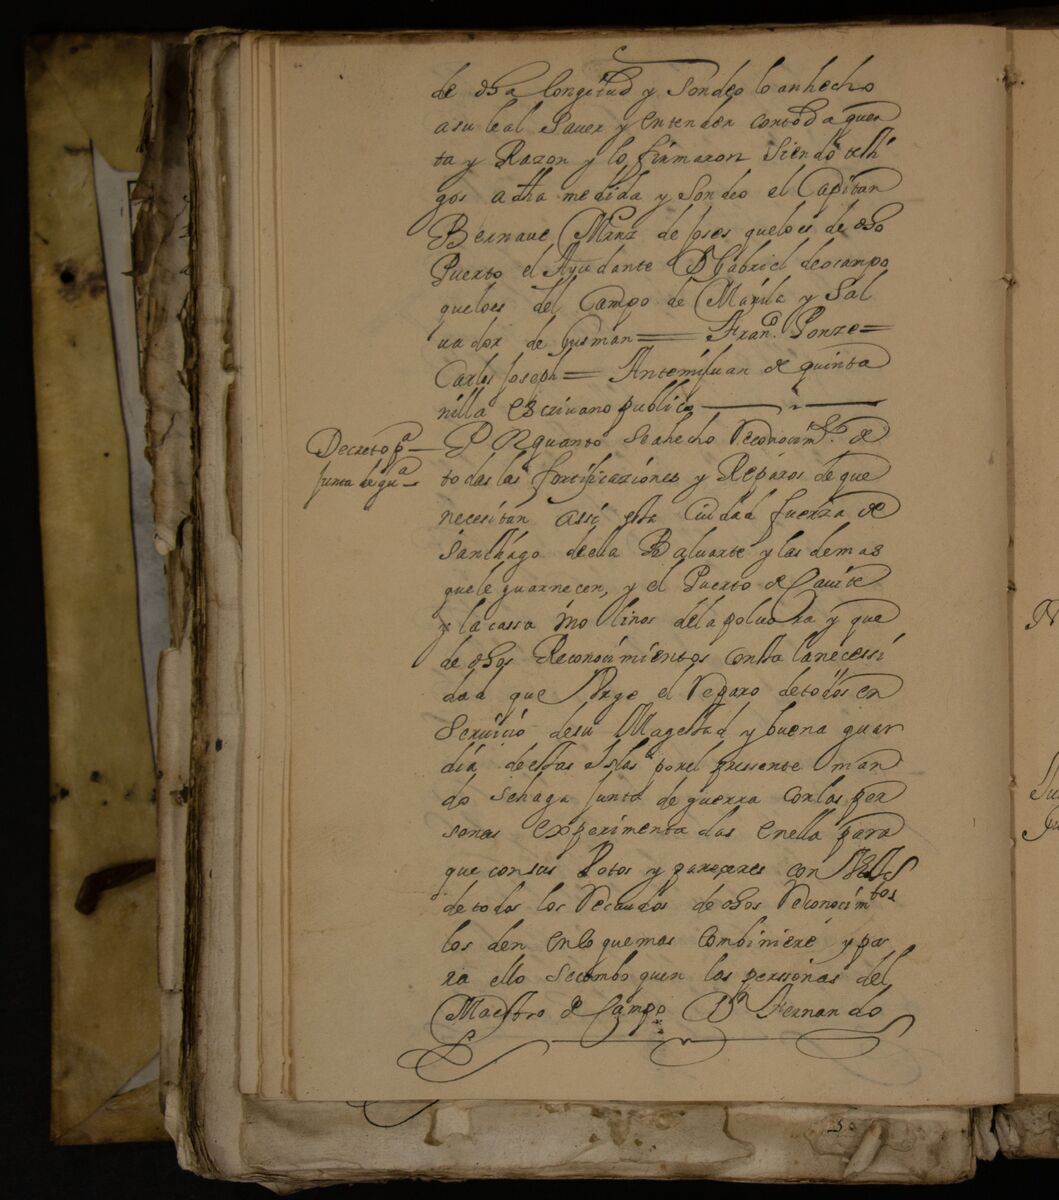 de dha longitud y sondeo lo an hecho
a su leal saver y entender con toda quen
ta y Razon y lo firmaron siendo testi
gos a dha medida y sondeo el Capitan
Bernave Mrnz de foses que lo es de dho
Puerto el Ayudante D Gabriel de ocampo
que lo es del Campo de Manila y Sal
vador de Gusman = Franco. Ponze =
Carlos Joseph = Ante mi Juan de quinta
nilla escrivano publico
Decreto pa
Junta de gua
Por quanto se a hecho Reconocimto. de
todas las fortificaziones y Reparos de que
necesitan assi esta Ciudad fuerza de
Santhiago de ella Baluarte y las demas
que le guarnecen, y el Puerto de Cavite
y la cassa molinos de la polvora y que
de dhos Reconocimientos consta la necessi
dad que Urge el Reparo de todos en
servicio de su Magestad y buena guar
dia de estas Islas por el pressente man
do se haga Junta de guerra con las per
sonas experimentadas en ella para
que con sus Votos y pareçeres con
de todos los Recaudos de dhos Reconocimtos
los den en lo que mas combiniere y pa
ra ello se comboquen las perssonas del
Maestro de Campo Dn Fernando